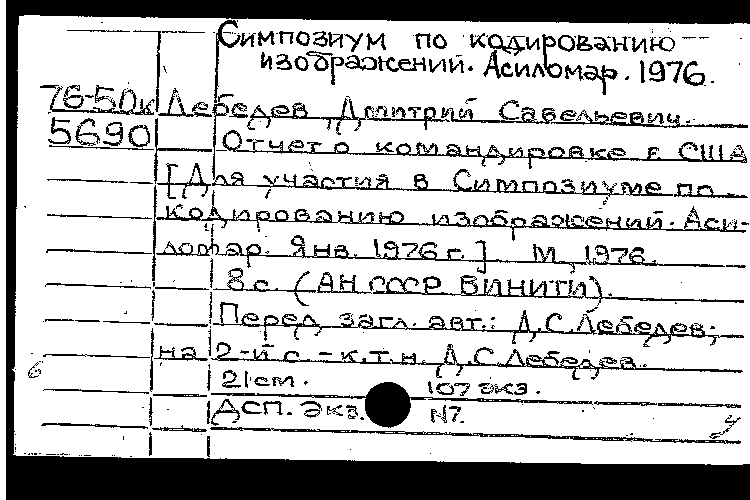 Симпозиум по кодированию
изображений. Асиломар. 1976.
76-50к Лебедев, Дмитрий Савельевич.
5690 Отчет о командировке в США
[Для участия в Симпозиуме по
кодированию изображений. Аси-
ломар. Янв. 1976 г.] М., 1976.
8 с. (АН СССР. ВИНИТИ).
Перед загл. авт.: Д.С. Лебедев;
на 2-й с. - к.т.н. Д.С. Лебедев.
21 см. 107 экз.
ДСП. Экз. N7.